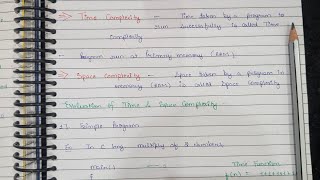 => Time Complexity -- Time taken by a program to
run successfully is called Time
complexity
-- Program run at primary memory (RAM).
=> Space Complexity -- Space taken by a program in
memory (RAM) is called Space Complexity
Evaluation of Time & Space Complexity
1) Simple Program
Ex In C lang multiply of 2 numbers
main()
{
Time Function
f(n) =